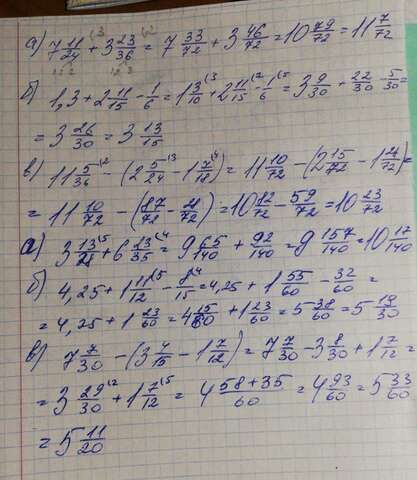 а) 7 11/24 + 3 23/36 = 7 33/72 + 3 46/72 = 10 79/72 = 11 7/72
б) 1,3 + 2 11/15 - 1/6 = 1 3/10 + 2 11/15 - 1/6 = 3 9/30 + 22/30 - 5/30 =
= 3 26/30 = 3 13/15
в) 11 5/36 - (2 5/24 - 1 7/18) = 11 10/72 - (2 15/72 - 1 /72) =
= 11 10/72 - (87/72 - /72) = 10 82/72 - 59/72 = 10 23/72
а) 3 13/28 + 6 23/35 = 9 65/140 + 92/140 = 9 157/140 = 10 17/140
б) 4,25 + 1 11/12 - 8/15 = 4,25 + 1 55/60 - 32/60 =
= 4,25 + 1 23/60 = 4 15/60 + 1 23/60 = 5 38/60 = 5 19/30
в) 7 7/30 - (3 4/15 - 1 7/12) = 7 7/30 - 3 8/30 + 1 7/12 =
= 3 29/30 + 1 7/12 = 4 58+35/60 = 4 93/60 = 5 33/60
= 5 11/20